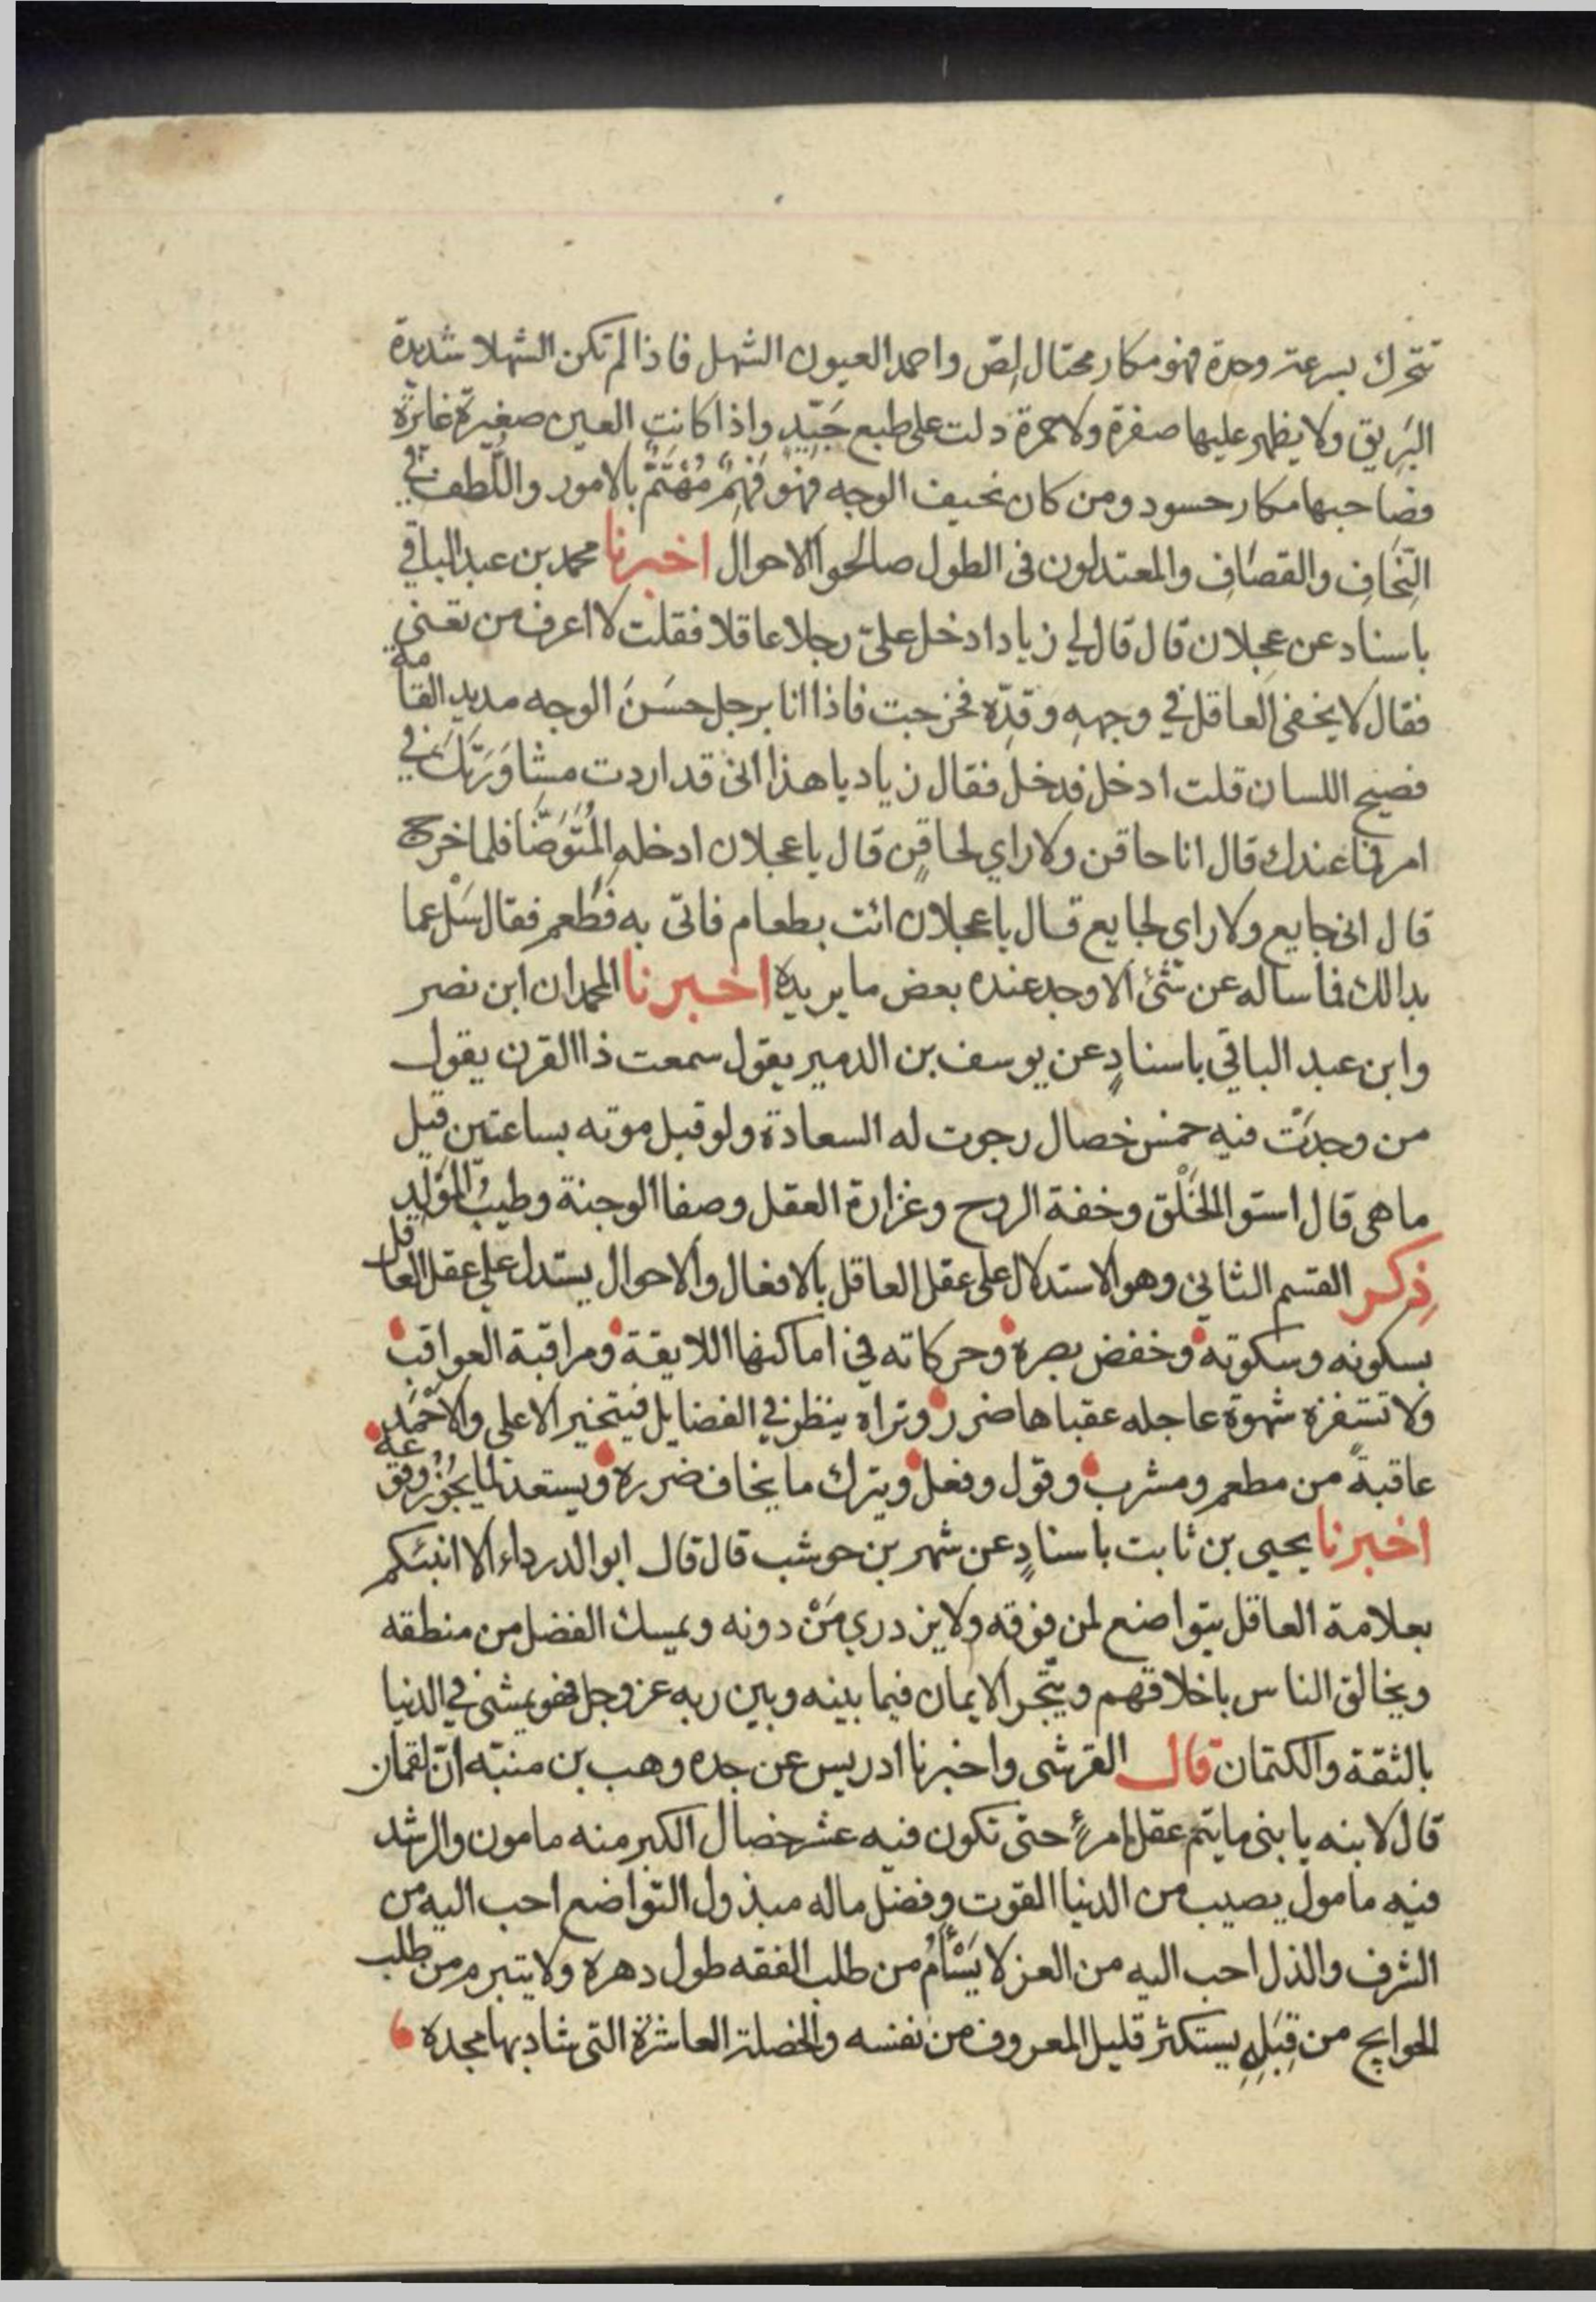 تتحرك بسرعة وحدة فهو مكار محتال لِصّ واحمد العيون الشهل فاذا لم تكن الشهلا شديدة
البَرِيق ولا يظهر عليها صفرة ولا حمرة دلت على طبع جَيّدٍ واذا كانت العين صغيرة غايرة
فصاحبها مكار حسود ومن كان نحيف الوجه فهو فَهِمٌ مُهْتَمٌّ بالامور واللّطف في
النِحَافِ والقصَافِ والمعتدلون في الطول صالحوا الاحوال اخبرنا محمد بن عبد الباقي
باسناد عن عجلان قال قال لي زياد ادخل عليّ رجلا عاقلا فقلت لا اعرف من تعني
فقال لا يخفى العاقل في وجهِهِ وقَدِّه فخرجت فاذا انا برجل حسَنَ الوجه مديد القامة
فصيح اللسان قلت ادخل فدخل فقال زياد يا هذا اني قد اردت مشاوَرَتَكَ في
امر فما عندك قال انا حاقن ولا راي لحاقِنٍ قال يا عجلان ادخلهِ المُتَوَضَّا فلما خرج
قال اني جايع ولا راي لجايع قال يا عجلان ائت بطعام فاتى به فطعم فقال سَلْ عما
بدا لك فما ساله عن شئ الا وجد عنده بعض ما يريده اخبرنا المحمدان ابن نصر
وابن عبد الباقي باسنادٍ عن يوسف بن الدمير يقول سمعت ذا القرن يقول
من وجدَتْ فيه خمس خصال رجوت له السعادة ولو قبل موته بساعتين قيل
ما هي قال استوا الخَلْق وخفة الروح وغزارة العقل وصفا الوجنة وطيبُ المَوْلِدِ
ذِكر القسم الثاني وهو الاستدلال على عقل العاقل بالافعال والاحوال يستدل على عقل العاقل
بسكونه وسكوته وخفض بصره وحركاته في اماكنها اللايقة ومراقبة العواقب
ولا تستفزه شهوة عاجله عقباها ضرر وتراه ينظر في الفضايل فيتخير الاعلى والاحْمَد
عاقبةً من مطعم ومشرب وقول وفعل ويترك ما يخاف ضرره ويستعد لما يجُوْزُ وقوعه
اخبرنا يحيى بن ثابت باسنادٍ عن شهر بن حوشب قال قال ابو الدرداء الا انبئكم
بعلامة العاقل يتواضع لمن فوقه ولا يزدري مَنْ دونه ويمسك الفضل من منطقه
ويخالق الناس باخلاقهم ويتّجر الايمان فيما بينه وبين ربه عز وجل فهو يمشي في الدنيا
بالثقة والكتمان قال القرشى واخبرنا ادريس عن جده وهب بن منبّه انّ لقمان
قال لابنه يا بنى ما يتم عقل امرءٍ حتى تكون فيه عشر خصال الكبر منه مامون والرشد
فيه مامول يصيب من الدنيا القوت وفضل ماله مبذول التواضع احب اليه من
الشرف والذل احب اليه من العز لا يَسْأَمُ من طلب الفقه طول دهره ولا يتبرم من طلب
الحوايج من قِبَلِهِ يستكثر قليل المعروف من نفسه والخصلة العاشرة التي شاد بها مجده